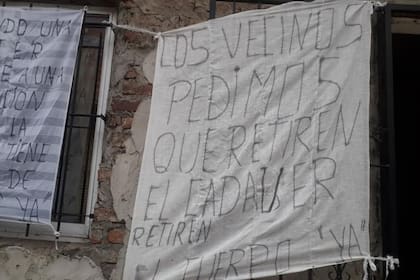 DO UNA
ER
E A UNA
CION
IA
TIENE
DE
YA
LOS VECINOS
PEDIMOS
QUE RETIREN
EL CADAVER
RETIREN
EL CUERPO "YA"